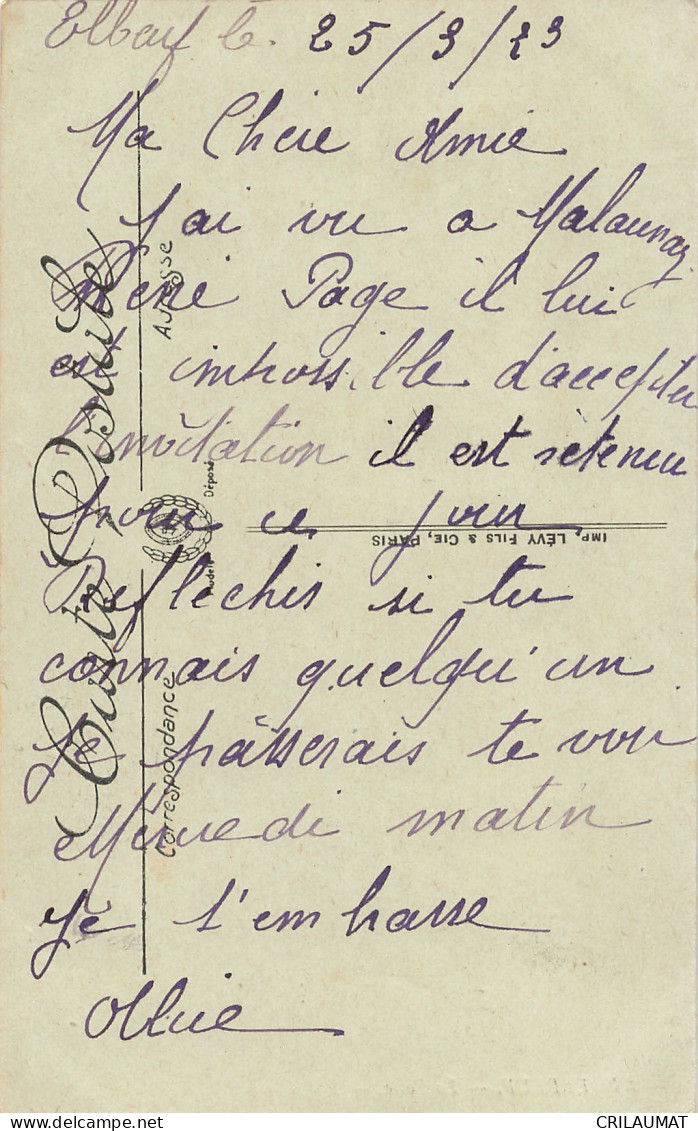 Elbeuf le. 25/3/23
Ma Cheie Amie
J'ai vu a Malaunay
René Page il lui
est impossible d'accepter
l'invitation il est retenu
pour ce jour
Reflechis si tu
connais quelqu'un
Je pàsserais te voir
Mercredi matin
Je t'embrasse
Carte Postale
Adresse
Correspondance
Modèle Déposé
IMP. LÉVY FILS & CIE, PARIS
DELCAMPE.NET
CRILAUMAT